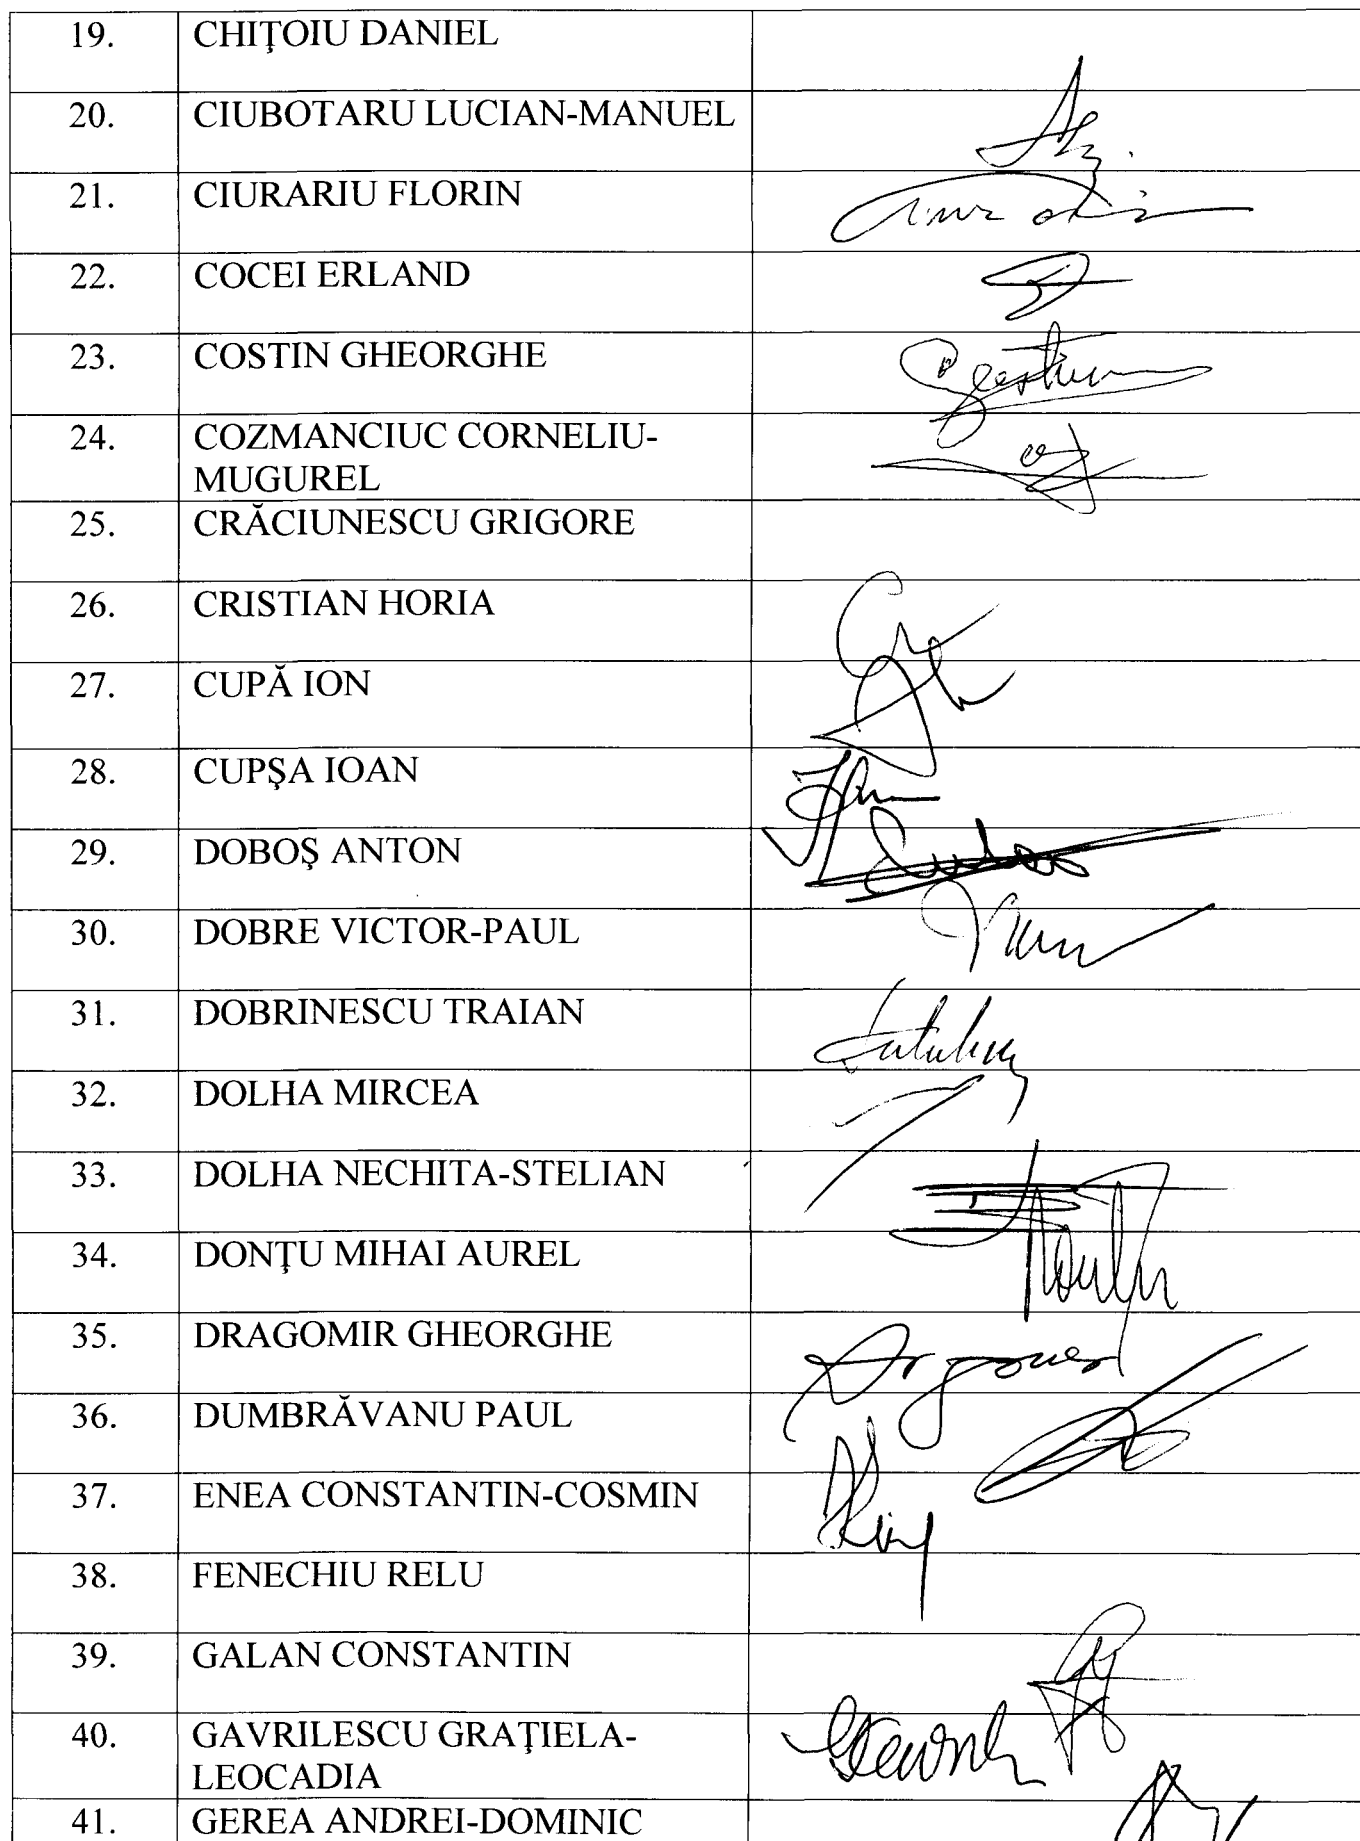 19. CHIŢOIU DANIEL
20. CIUBOTARU LUCIAN-MANUEL
21. CIURARIU FLORIN
22. COCEI ERLAND
23. COSTIN GHEORGHE
24. COZMANCIUC CORNELIU-
MUGUREL
25. CRĂCIUNESCU GRIGORE
26. CRISTIAN HORIA
27. CUPĂ ION
28. CUPŞA IOAN
29. DOBOŞ ANTON
30. DOBRE VICTOR-PAUL
31. DOBRINESCU TRAIAN
32. DOLHA MIRCEA
33. DOLHA NECHITA-STELIAN
34. DONŢU MIHAI AUREL
35. DRAGOMIR GHEORGHE
36. DUMBRĂVANU PAUL
37. ENEA CONSTANTIN-COSMIN
38. FENECHIU RELU
39. GALAN CONSTANTIN
40. GAVRILESCU GRAŢIELA-
LEOCADIA
41. GEREA ANDREI-DOMINIC